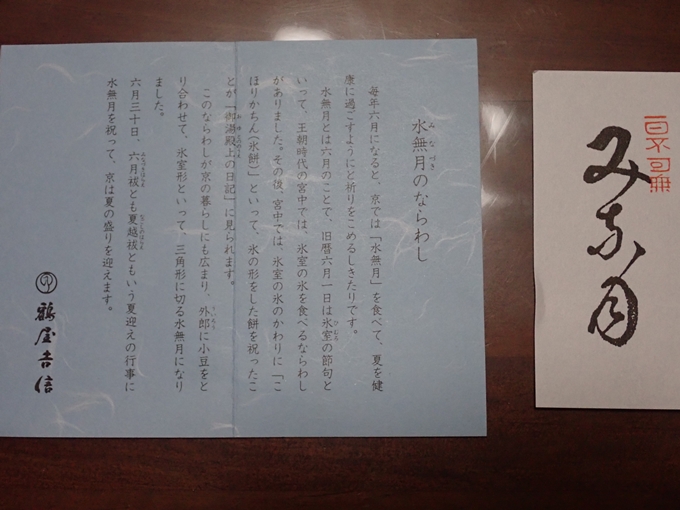 一日不可無
みな月
みなづき
水無月のならわし
毎年六月になると、京では「水無月」を食べて、夏を健
康に過ごすようにと祈りをこめるしきたりです。
ひむろ
水無月とは六月のことで、旧暦六月一日は氷室の節句と
いって、王朝時代の宮中では、氷室の氷を食べるならわし
がありました。その後、宮中では、氷室の氷のかわりに「こ
ほりかちん(氷餅)」といって、氷の形をした餅を祝ったこ
とが「御湯殿上の日記」に見られます。
ういろう
このならわしが京の暮らしにも広まり、外郎に小豆をと
り合わせて、氷室形といって、三角形に切る水無月になり
ました。
六月三十日、六月祓とも夏越祓ともいう夏迎えの行事に
水無月を祝って、京は夏の盛りを迎えます。
鶴屋吉信